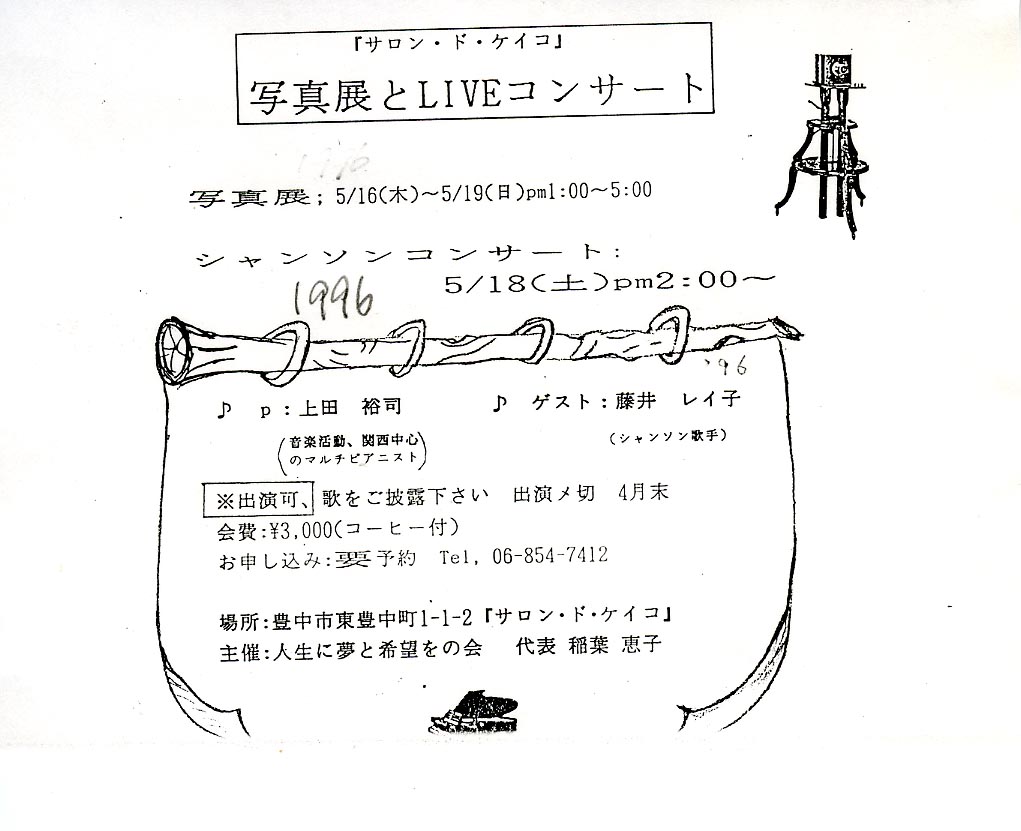 『サロン・ド・ケイコ』
写真展とLIVEコンサート
写真展; 5/16(木)～5/19(日)pm1:00～5:00
シャンソンコンサート:
5/18(土)pm2:00～
1996
'96
♪ p:上田 裕司 ♪ ゲスト:藤井 レイ子
(音楽活動、関西中心 (シャンソン歌手)
のマルチピアニスト)
※出演可、歌をご披露下さい 出演〆切 4月末
会費:¥3,000(コーヒー付)
お申し込み:要予約 Tel, 06-854-7412
場所:豊中市東豊中町1-1-2『サロン・ド・ケイコ』
主催:人生に夢と希望をの会 代表 稲葉 恵子